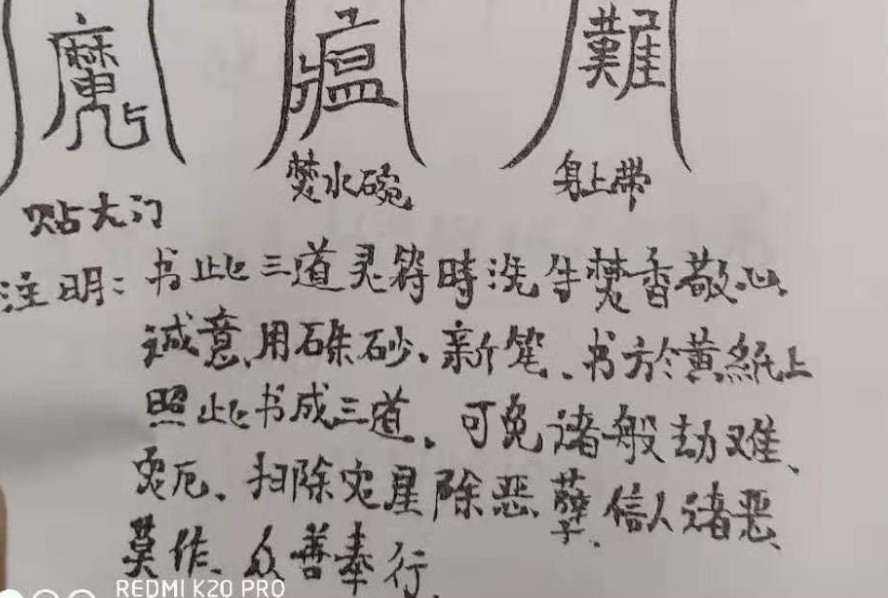 魔 瘟 難
贴大门 焚水碗 身上带
注明:书此三道灵符時洗手焚香敬心
诚意、用硃砂、新笔、书於黄紙上
照此书成三道、可免诸般劫难、
灾厄、扫除灾星除恶孽、信人诸恶
莫作、众善奉行、
REDMI K20 PRO